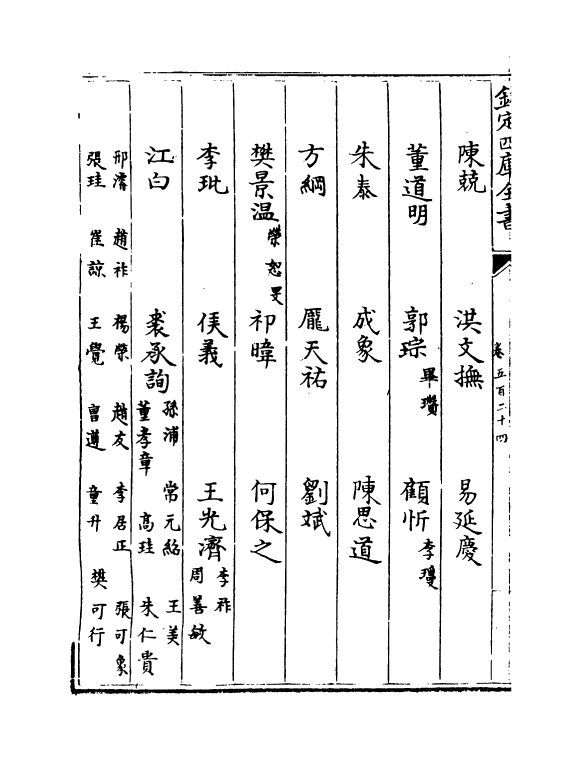 欽定四庫全書
卷五百二十四
陳兢 洪文撫 易延慶
董道明 郭琮 畢瓚 顧忻 李瓊
朱泰 成象 陳思道
方綱 龐天祐 劉斌
樊景温 榮恕旻 祁暐 何保之
李玭 侯義 王光濟 李祚 周善敏
江白 裘承詢 孫浦 董孝章 常元紹 高珪 王美 朱仁貴
邢濬 趙祚 楊榮 趙友 李居正 張可象
張珪 崔諒 王覺 曹遵 童升 樊可行